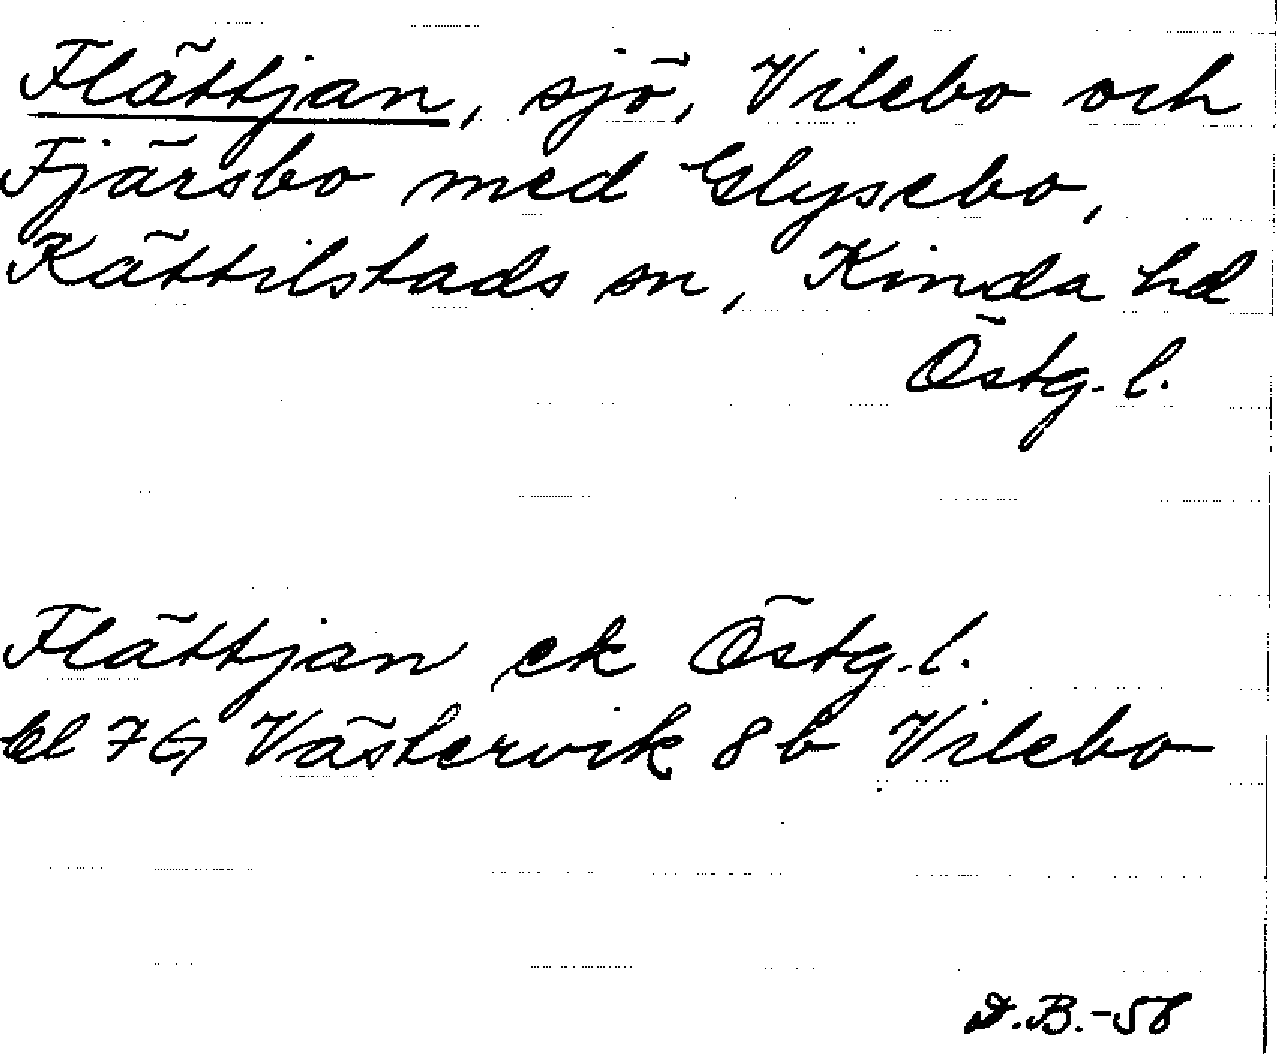 Flättjan, sjö, Vilebo och
Fjärsbo med Glysebo,
Kättilstads sn, Kinda hd
Östg. l.
Flättjan ek Östg. l.
bl 7G Västervik 8b Vilebo
D.B.-58